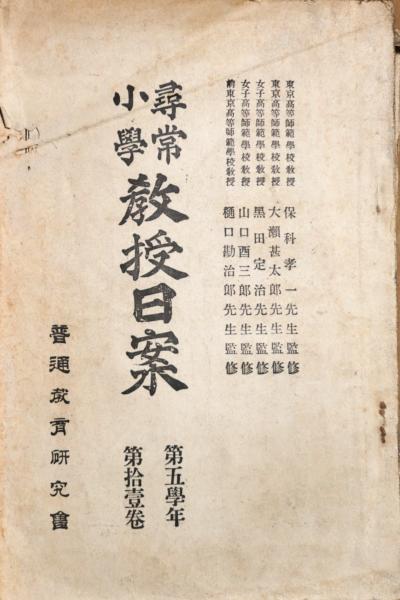 東京高等師範學校敎授 保科孝一先生監修
東京高等師範學校敎授 大瀨甚太郎先生監修
女子高等師範學校敎授 黑田定治先生監修
女子高等師範學校敎授 山口酉三郎先生監修
前東京高等師範學校敎授 樋口勘治郎先生監修
尋常
小學
敎授日案
第五學年
第拾壹卷
普通敎育硏究會